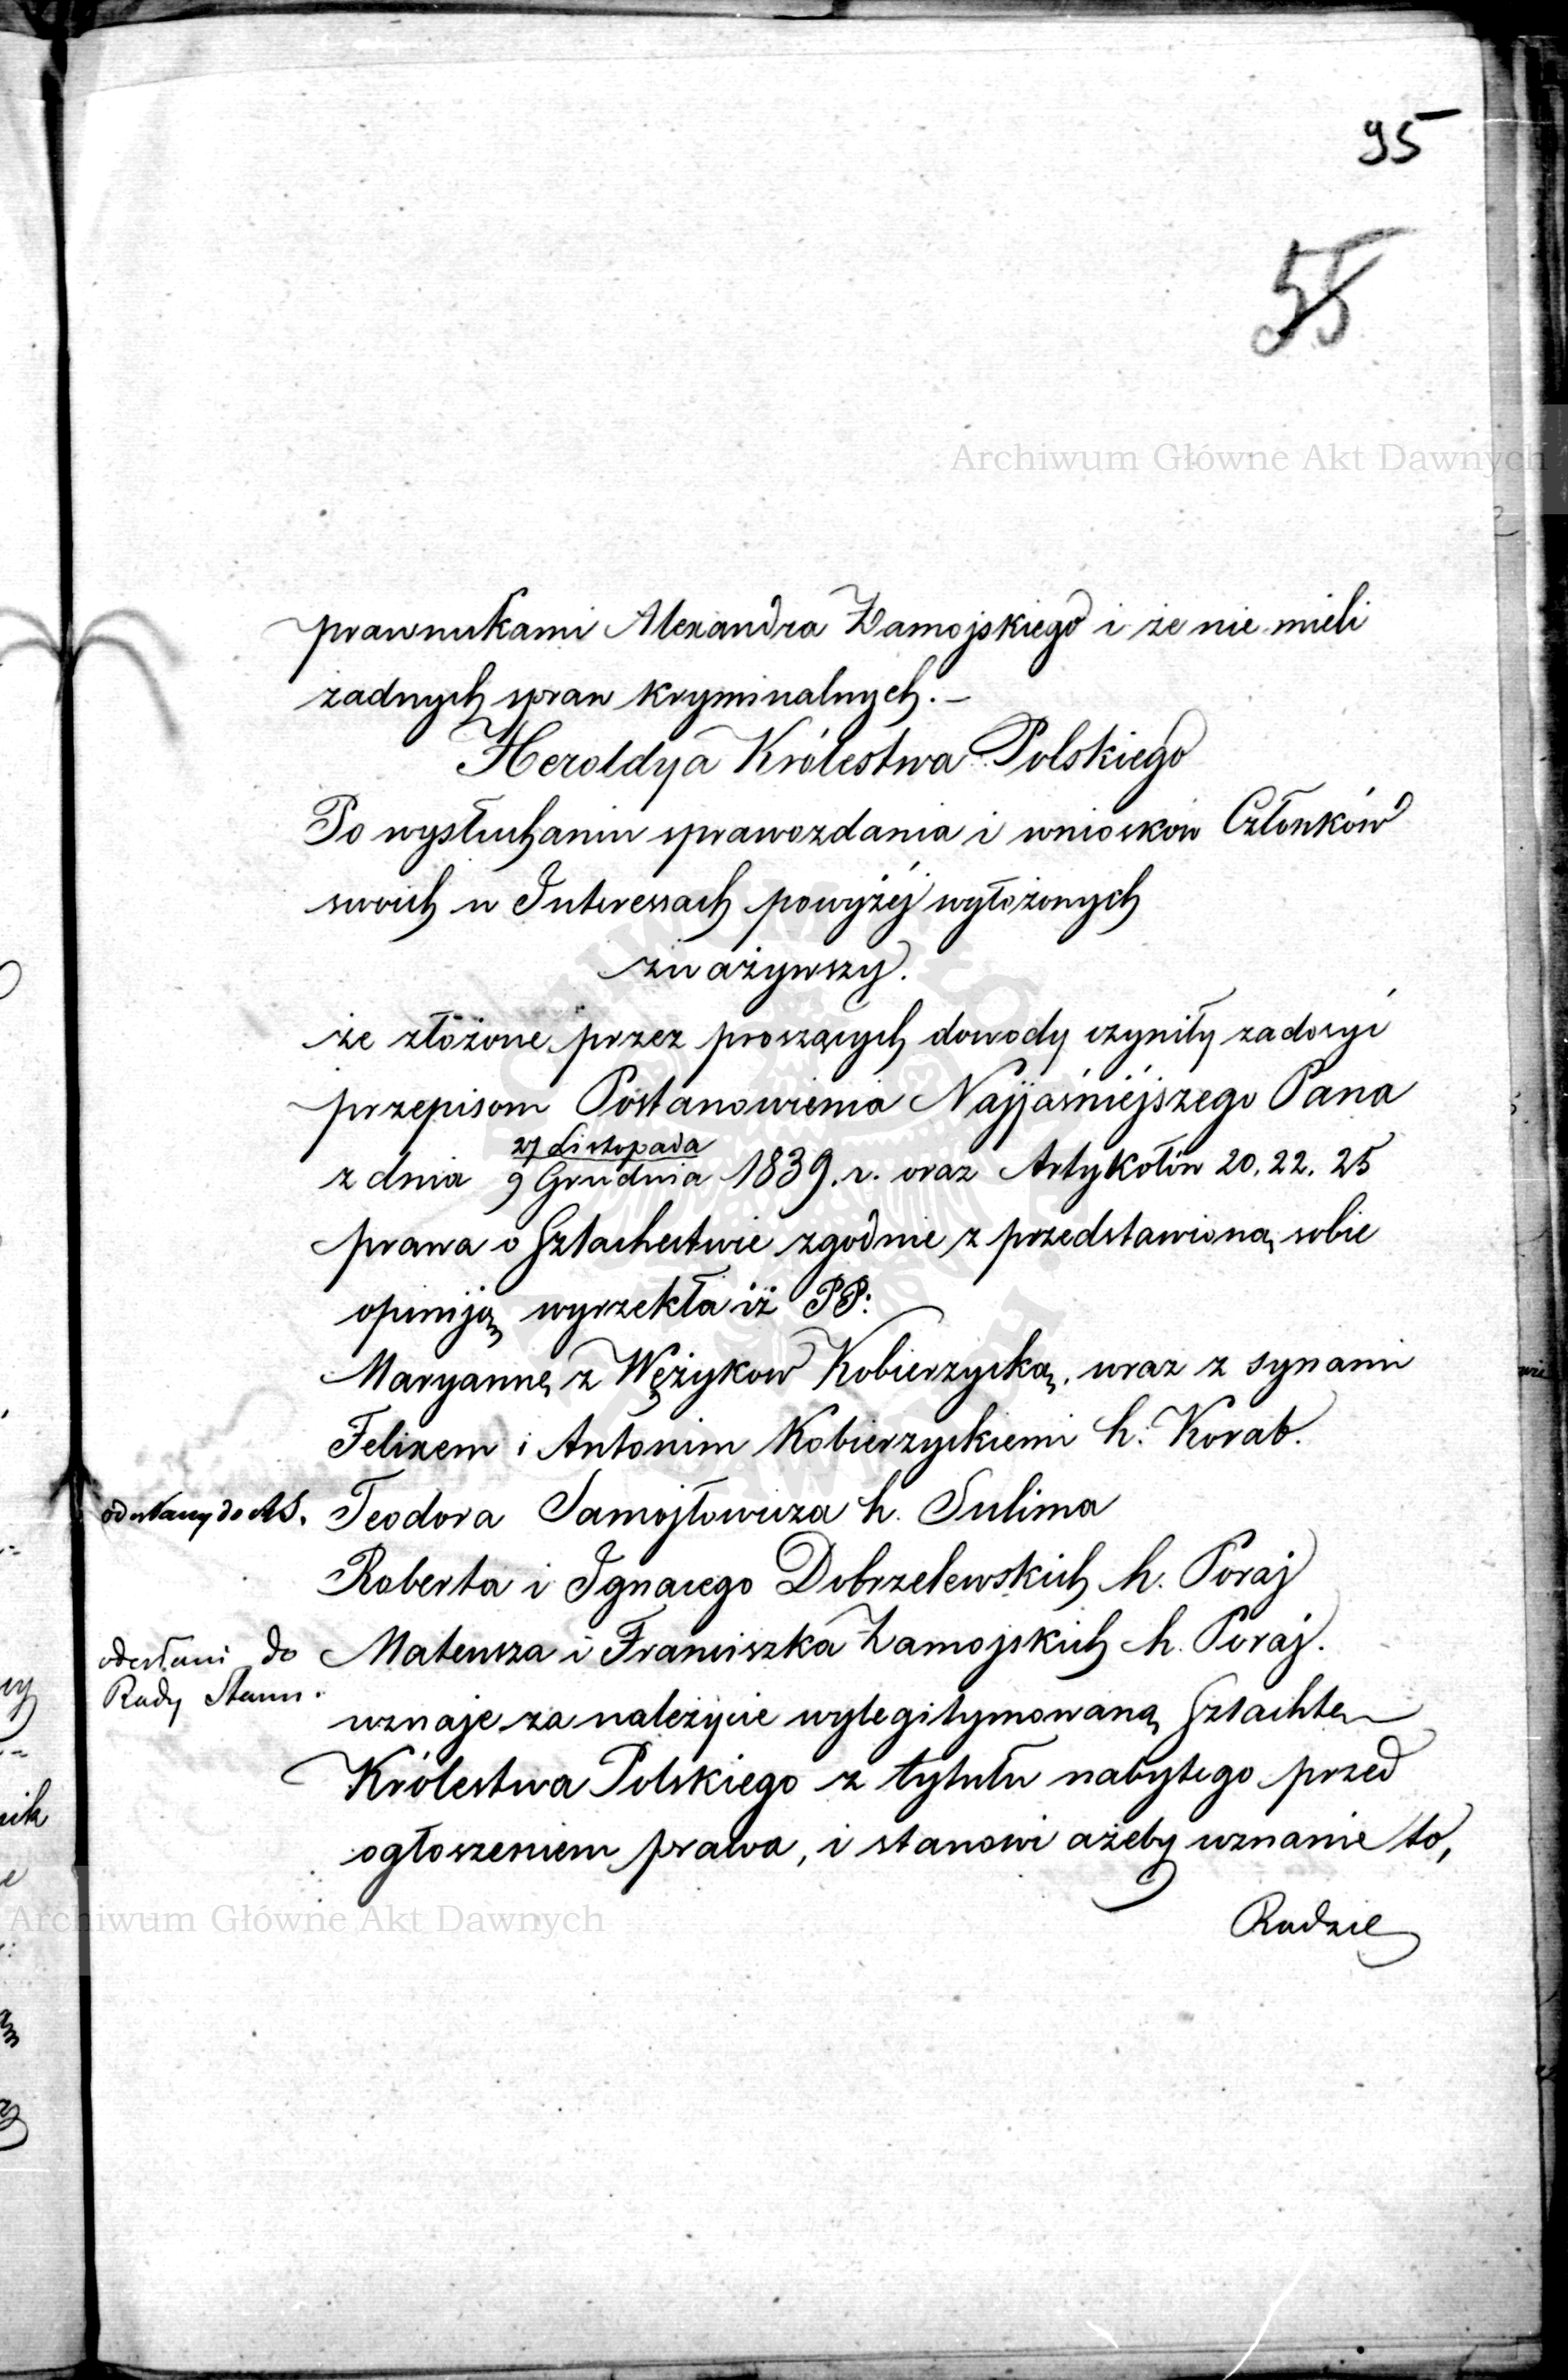 95
55
Archiwum Główne Akt Dawnych
prawnukami Alexandra Zamojskiego i że nie mieli
żadnych spraw kryminalnych. –
Heroldya Królestwa Polskiego
Po wysłuchaniu sprawozdania i wniosków Członków
swoich w Interessach powyżéj wyłożonych
zważywszy.
że złożone przez proszących dowody czyniły zadosyć
przepisom Postanowienia Najjaśniejszego Pana
z dnia 27 Listopada / 9 Grudnia 1839. r. oraz Artykołów 20. 22. 25
prawa o Szlachectwie zgodnie z przedstawioną sobie
opiniją wyrzekła iż PP:
Maryannę z Wężykow Kobierzycką, wraz z synami
Felixem i Antonim Kobierzyckiemi h. Korab.
odesłany do AS. Teodora Samojłowicza h. Sulima
Roberta i Ignacego Dobrzelewskich h. Poraj
odesłani do Mateusza i Franciszka Zamojskich h. Poraj.
Rady Stanu.
uznaje za należycie wylegitymowaną Szlachtę
Królestwa Polskiego z tytułu nabytego przed
ogłoszeniem prawa, i stanowi ażeby uznanie to,
Archiwum Główne Akt Dawnych
Radzie